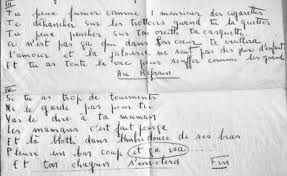 III
Tu peux fumer comme un monsieur des cigarettes
Te déhancher sur les trottoirs quand tu la guettes
Tu peux pencher sur ton oreille ta casquette
Ce n'est pas ça que dans son cœur te vieillira
L'amour et la jalousie ne sont pas des jeux d'enfant
Et tu as toute la vie pour souffrir comme les grands
Au Refrain
IV
Si tu as trop de tourments
Ne le garde pas pour toi
Vas le dire à ta maman
Les mamans c'est fait pour ça
Et là blotti dans l'ombre douce de ses bras
Pleure un bon coup et ça ira
Et ton chagrin s'envolera Fin